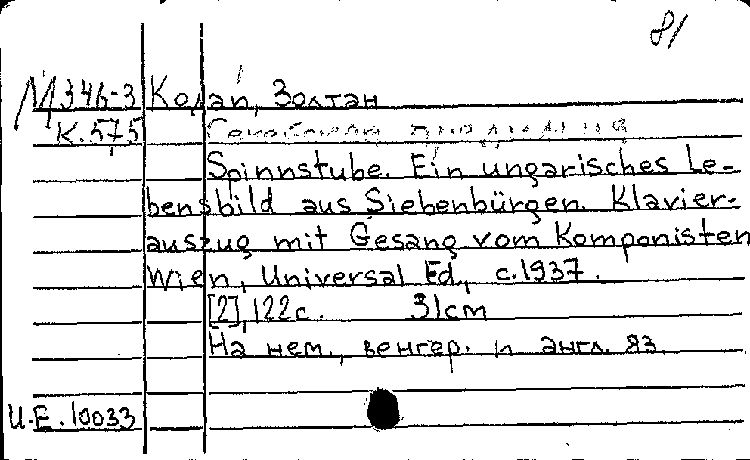 81
М 346-3 Кодаи, Золтан
К.575
Spinnstube. Ein ungarisches Le-
bensbild aus Siebenbürgen. Klavier-
auszug mit Gesang vom Komponisten
Wien, Universal Ed., c.1937.
[2],122с. 31cm
На нем., венгер. и англ. яз.
U.E.10033